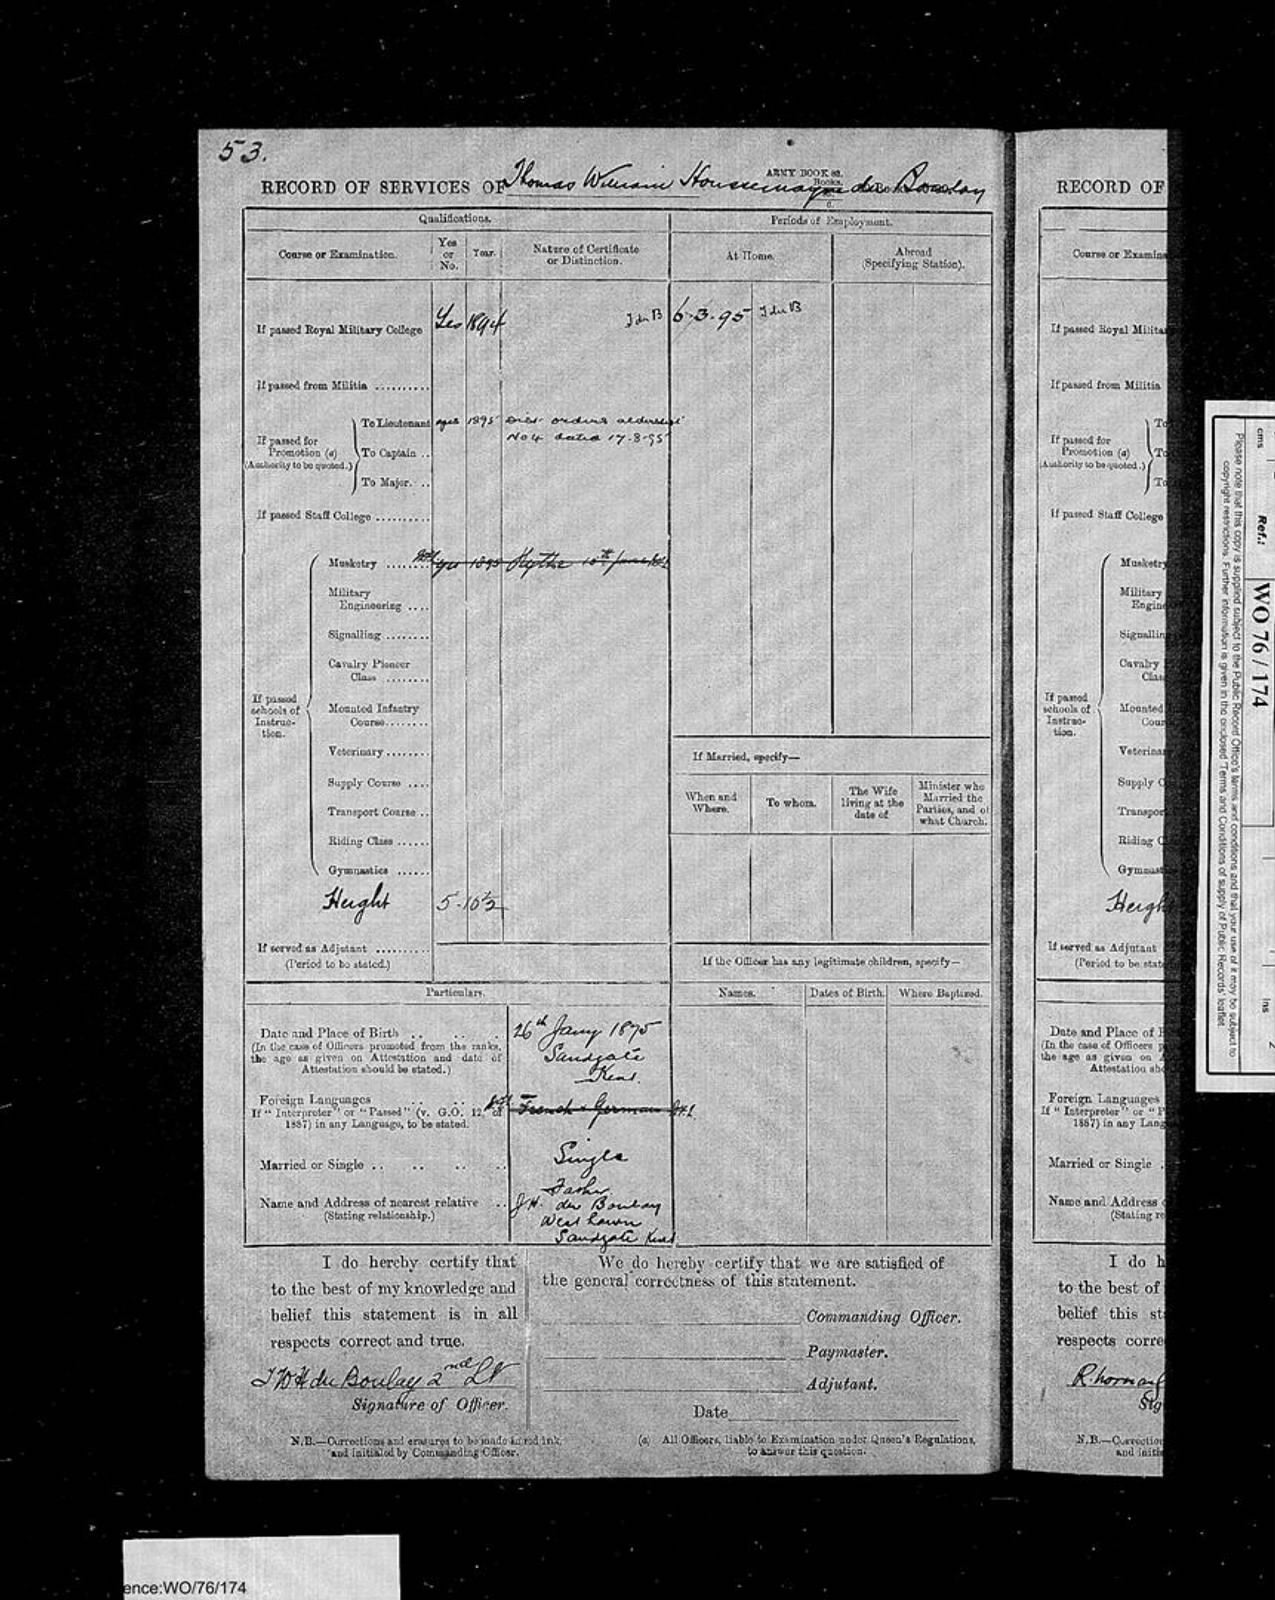 53.
ARMY BOOK 83.
RECORD OF SERVICES OF Thomas William Houssemayne du Boulay
Qualifications.
Periods of Employment.
Course or Examination.
Yes or No.
Year.
Nature of Certificate or Distinction.
At Home.
Abroad (Specifying Station).
If passed Royal Military College Yes 1894 T du B 6.3.95 T du B
If passed from Militia
If passed for Promotion (a) (Authority to be quoted.)
To Lieutenant yes 1895 Dist. orders
No 4 dated 17.8.95
To Captain
To Major.
If passed Staff College
If passed schools of Instruction.
Musketry yes 1895 Hythe 10th June
Military Engineering
Signalling
Cavalry Pioneer Class
Mounted Infantry Course
Veterinary
Supply Course
Transport Course
Riding Class
Gymnastics
Height 5.10½
If served as Adjutant
(Period to be stated.)
If Married, specify—
When and Where.
To whom.
The Wife living at the date of
Minister who Married the Parties, and of what Church.
If the Officer has any legitimate children, specify—
Names.
Dates of Birth.
Where Baptized.
Particulars.
Date and Place of Birth 26th Jany 1875
(In the case of Officers promoted from the ranks, the age as given on Attestation and date of Attestation should be stated.)
Sandgate
Kent.
Foreign Languages French & German
If "Interpreter" or "Passed" (v. G.O. 12 of 1887) in any Language, to be stated.
Married or Single Single
Name and Address of nearest relative
(Stating relationship.)
Father
J.H. du Boulay
West Lawn
Sandgate Kent
I do hereby certify that
to the best of my knowledge and
belief this statement is in all
respects correct and true.
T W H du Boulay 2nd Lt
Signature of Officer.
We do hereby certify that we are satisfied of
the general correctness of this statement.
Commanding Officer.
Paymaster.
Adjutant.
Date
N.B.—Corrections and erasures to be made in red ink,
and initialed by Commanding Officer.
(a) All Officers, liable to Examination under Queen's Regulations,
to answer this question.
RECORD OF
Course or Examina
If passed Royal Milita
If passed from Militia
If passed for Promotion (a)
(Authority to be quoted.)
To
To
To
If passed Staff College
If passed schools of Instruction.
Musketry
Military
Engine
Signallin
Cavalry
Clas
Mounted
Cour
Veterinar
Supply C
Transpor
Riding C
Gymnast
Heigh
If served as Adjutant
(Period to be state
Date and Place of B
(In the case of Officers p
the age as given on A
Attestation sho
Foreign Languages
If "Interpreter" or "P
1887) in any Lang
Married or Single
Name and Address
(Stating re
I do h
to the best of
belief this st
respects corre
Sig
N.B.—Correction
and initi
cms
Ref.:
WO 76 / 174
ins
2
Please note that this copy is supplied subject to the Public Record Office's terms and conditions and that your use of it may be subject to
copyright restrictions. Further information is given in the enclosed 'Terms and Conditions of supply of Public Records' leaflet
ence:WO/76/174